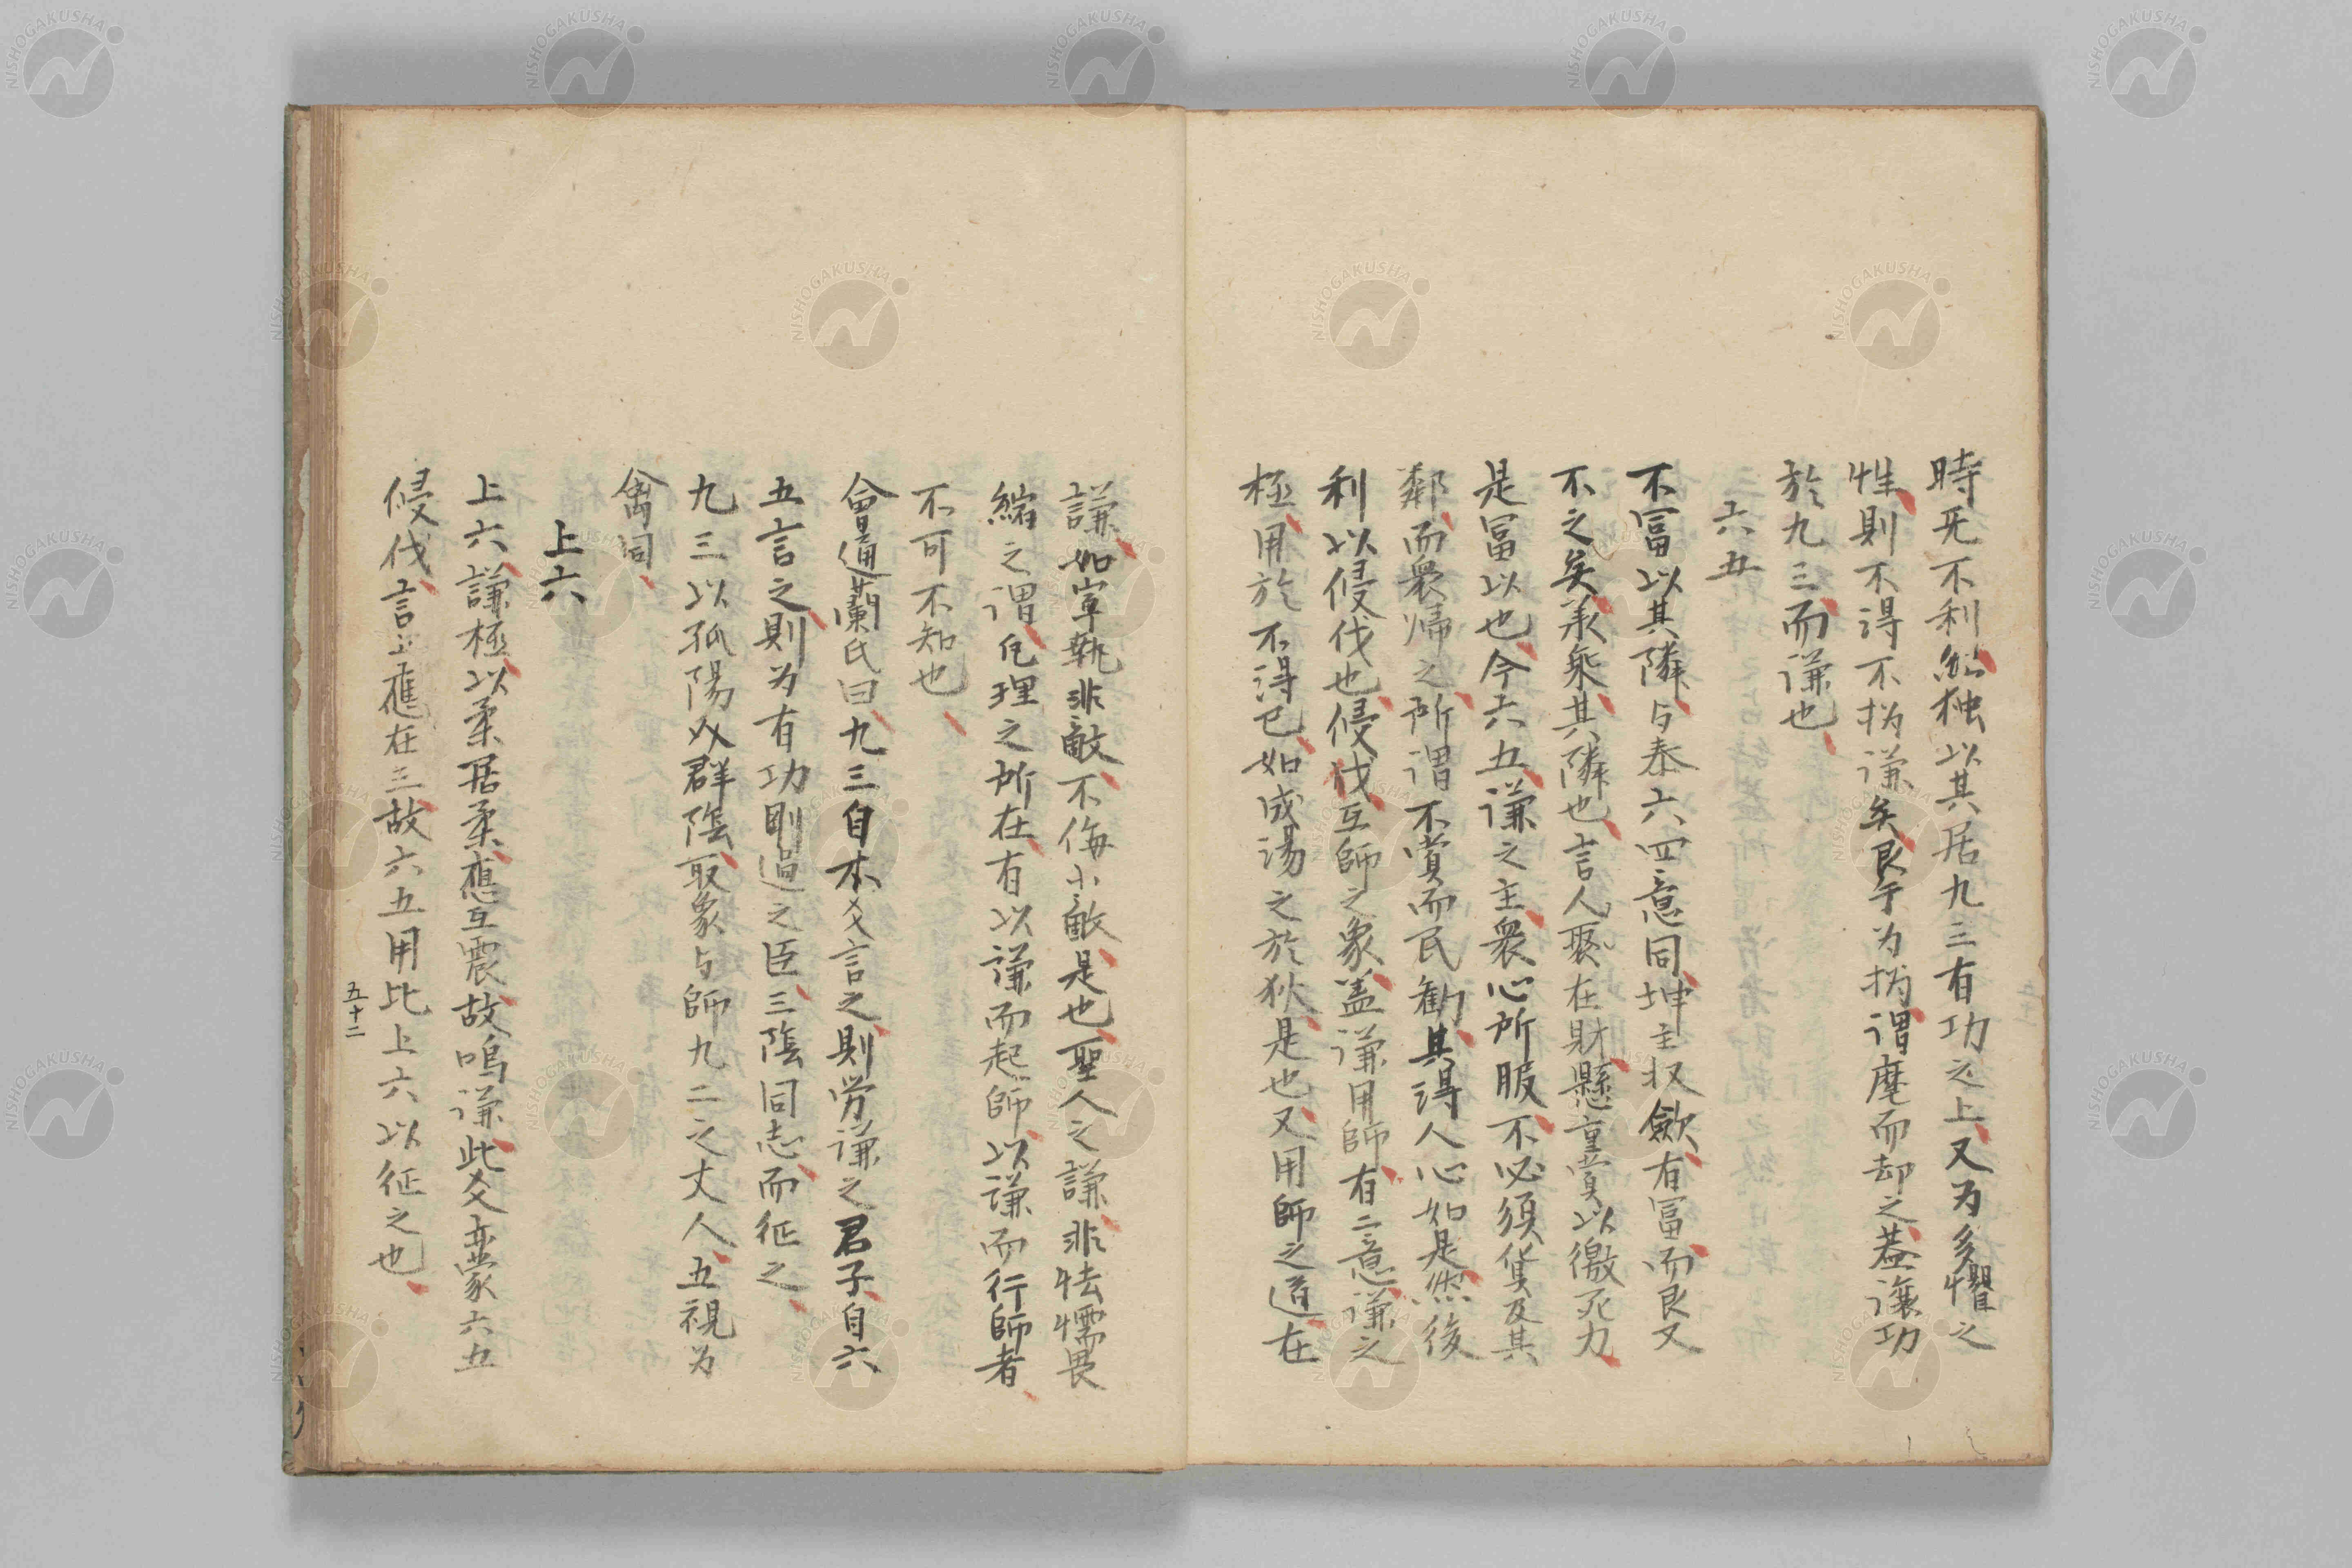 時无不利然独以其居九三有功之上又为多懼之
性則不得不㧑谦矣艮手为㧑謂麾而却之葢讓功
於九三而谦也
六五
不冨以其隣与泰六四意同坤主収歛有冨而艮又
不之矣承乘其隣也言人聚在財懸重賞以徼死力
是冨以也今六五谦之主衆心所服不必須貨及其
鄰而衆帰之所谓不賞而民勧其得人心如是然後
利以侵伐也侵伐互師之象盖谦用師有二意谦之
極用於不得已如成湯之於狄是也又用師之道在
謙如寧執非敵不侮小敵是也聖人之謙非怯懦畏
縮之谓乃理之所在有以谦而起師以谦而行師者
不可不知也
會通蘭氏曰九三自本爻言之則労谦之君子自六
五言之則为有功剛過之臣三陰同志而征之
九三以孤陽从群陰取象与師九二之丈人五視为
禽同
上六
上六謙極以柔居柔應互震故鳴谦此爻亦蒙六五
侵伐言正應在三故六五用比上六以征之也
五十二
NISHOGAKUSHA